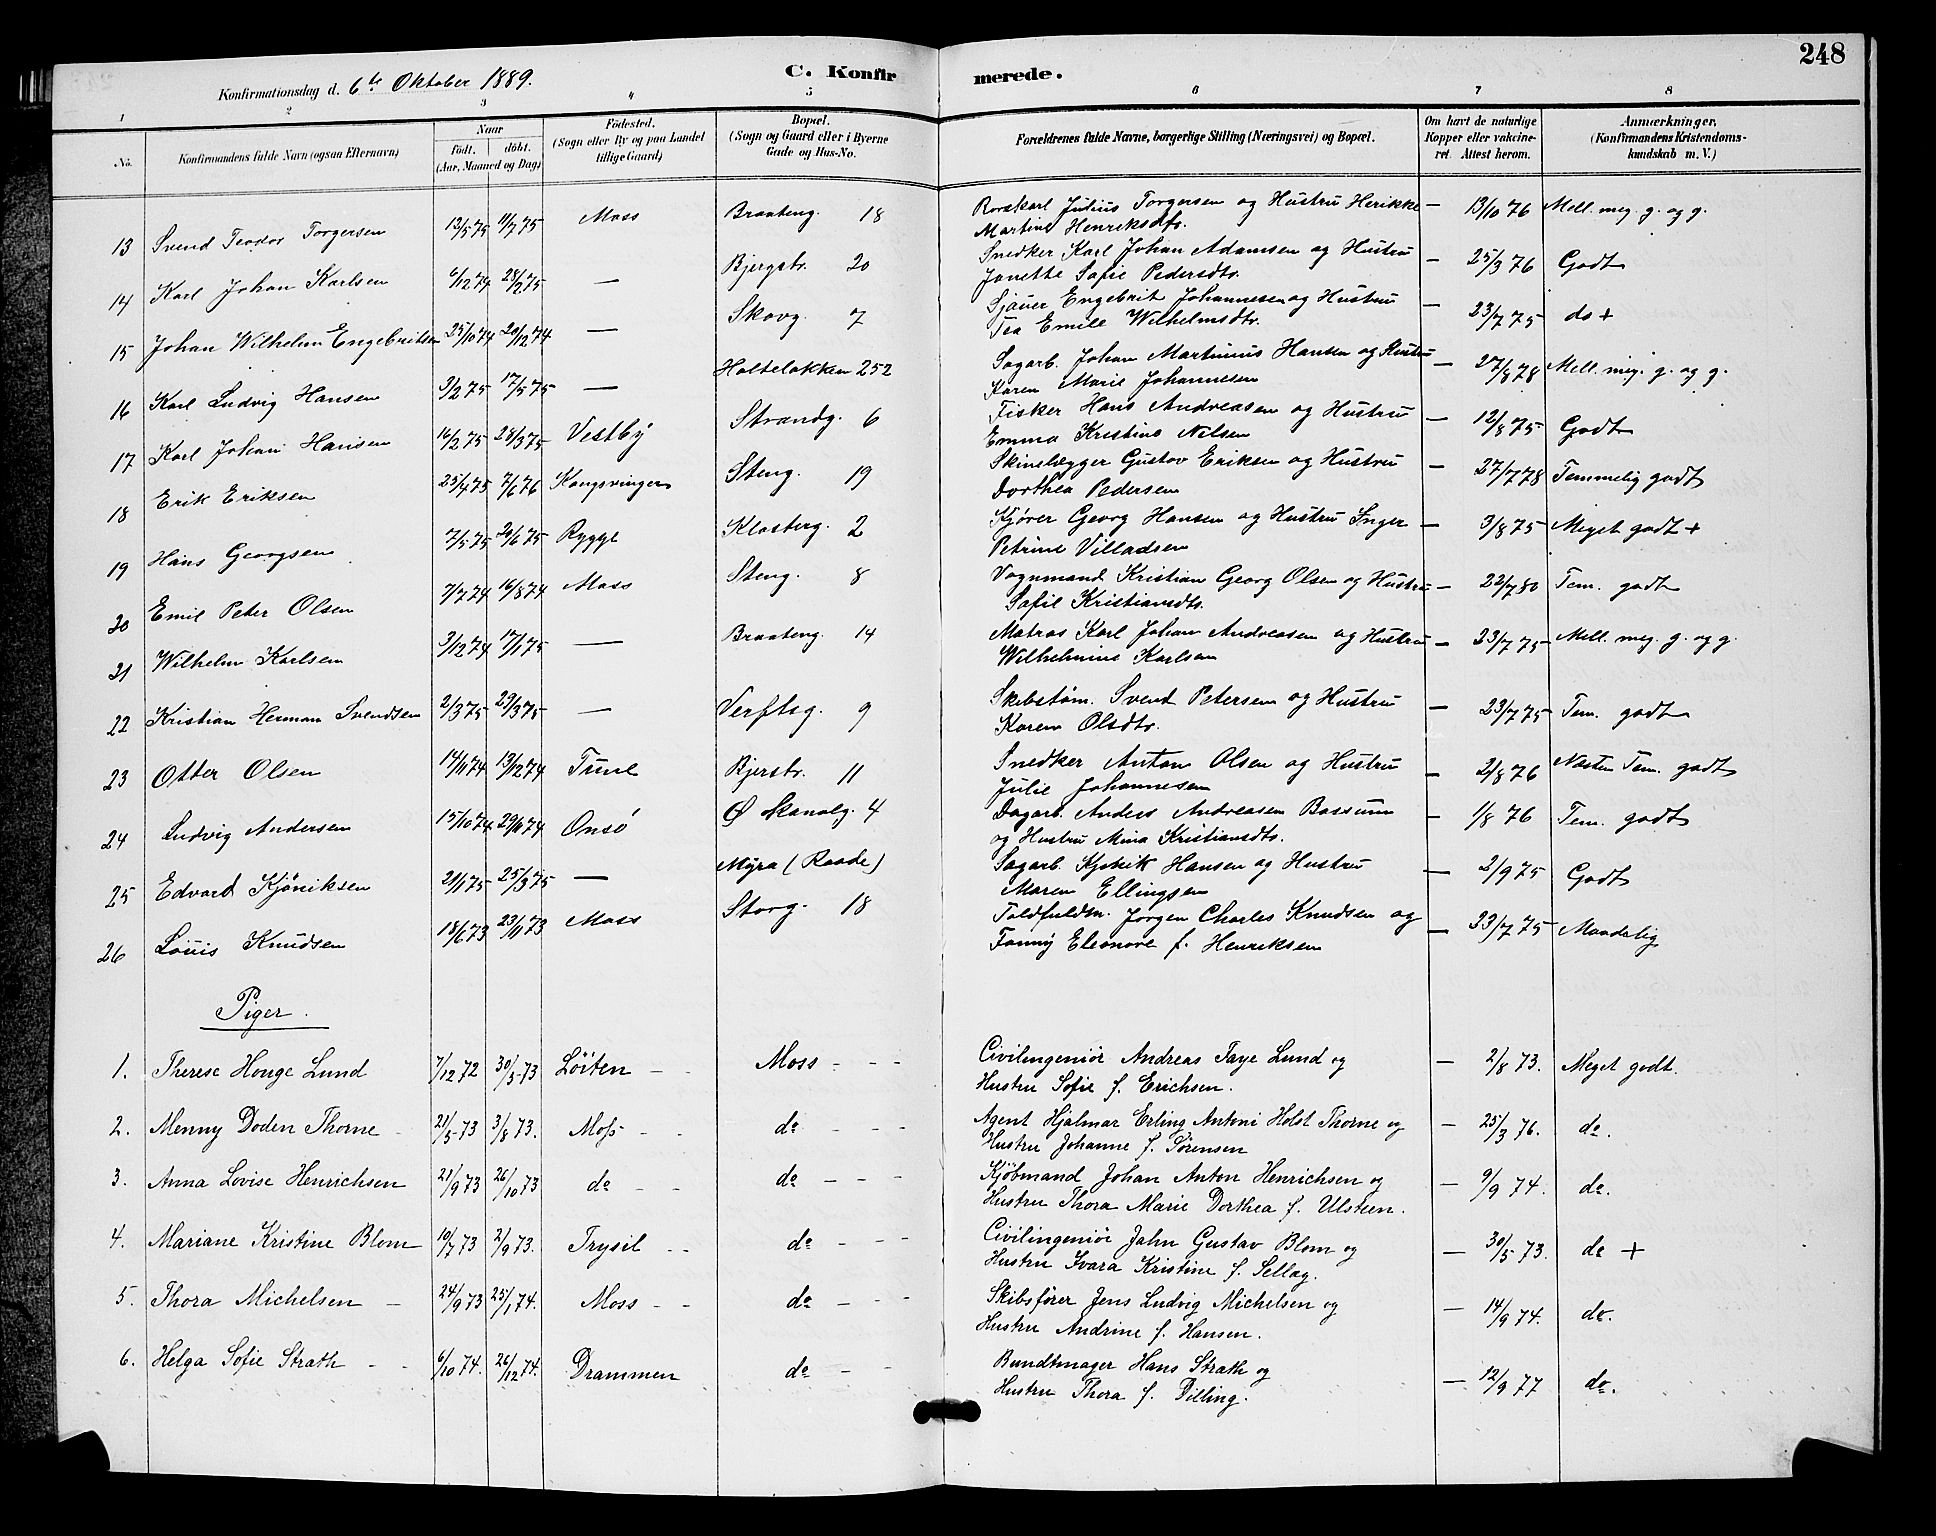 248
Konfirmationsdag d. 6te Oktober 1889.
C. Konfirmerede.
1 2 3 4 5 6 7 8
No. Konfirmandens fulde Navn (ogsaa Efternavn) Naar födt. döbt. (Aar, Maaned og Dag) Födested. (Sogn eller By og paa Landet tillige Gaard) Bopæl. (Sogn og Gaard eller i Byerne Gade og Hus-No. Forældrenes fulde Navne, borgerlige Stilling (Næringsvei) og Bopæl. Om havt de naturlige Kopper eller vakcineret. Attest herom. Anmærkninger, (Konfirmandens Kristendomskundskab m. V.)
13 Svend Teodor Torgersen 13/5 75 11/7 75 Moss Braateng. 18 Rorskarl Julius Torgersen og Hustru Herikke — 13/10 76 Mell. meg. g. og g.
Martine Henriksdtr.
14 Karl Johan Karlsen 6/12 74 28/2 75 — Bjergstr. 20 Snedker Karl Johan Adamsen og Hustru — 25/3 76 Godt
Janette Sofie Pedersdtr.
15 Johan Wilhelm Engebritsen 25/10 74 20/12 74 — Skovg. 7 Sjauer Engebrit Johannesen og Hustru — 23/7 75 do +
Tea Emile Wilhelmsdtr.
16 Karl Ludvig Hansen 9/2 75 17/5 75 — Holteløkken 252 Sagarb. Johan Martinius Hansen og Hustru — 27/8 78 Mell. meg. g. og g.
Karen Marie Johannesen
17 Karl Johan Hansen 16/2 75 28/3 75 Vestby Strandg. 6 Fisker Hans Andreasen og Hustru — 12/8 75 Godt
Emma Kristine Nilsen
18 Erik Eriksen 25/4 75 7/6 76 Kongsvinger Steng. 19 Skinelægger Gustav Eriksen og Hustru — 27/7 78 Temmelig godt
Dorthea Pedersen
19 Hans Georgsen 7/5 75 20/6 75 Rygge Klosterg. 2 Kjører Georg Hansen og Hustru Inger — 3/8 75 Meget godt +
Petrine Villadsen
20 Emil Peter Olsen 7/7 74 16/8 74 Moss Steng. 8 Vognmand Kristian Georg Olsen og Hustru — 22/7 80 Tem. godt
Sofie Kristiansdtr.
21 Wilhelm Karlsen 3/12 74 17/1 75 — Braateng. 14 Matros Karl Johan Andreasen og Hustru — 23/7 75 Mell. meg. g. og g.
Wilhelmine Karlsen
22 Kristian Herman Svendsen 2/3 75 29/3 75 — Verftsg. 9 Skibstøm. Svend Petersen og Hustru — 23/7 75 Tem. godt
Karen Olsdtr.
23 Otter Olsen 14/11 74 13/12 74 Tune Bjerstr. 11 Snedker Anton Olsen og Hustru — 2/8 76 Næsten Tem. godt
Julie Johannesen
24 Ludvig Andersen 15/10 74 29/11 74 Onsø Ø Kanalg. 4 Dagarb. Anders Andreasen Bassum — 1/8 76 Tem. godt
og Hustru Mina Kristiansdtr.
25 Edvard Kjöniksen 21/1 75 25/3 75 — Myra (Raade) Sagarb. Kjønik Hansen og Hustru — 2/9 75 Godt
Maren Ellingsen
26 Louis Knudsen 18/6 73 23/11 73 Moss Storg. 18 Toldfuldm. Jørgen Charles Knudsen og — 23/7 75 Maadelig
Fanny Eleonore f. Henriksen
Piger.
1. Therese Houge Lund 7/12 72 30/3 73 Löiten Moss Civilingeniör Andreas Faye Lund og — 2/8 73. Meget godt.
Hustru Sofie f. Erichsen.
2. Menny Doden Thorne 21/5 73 3/8 73. Moss do Agent Hjalmar Erling Antoni Holst Thorne og — 25/3 76. do.
Hustru Johanne f. Sørensen
3. Anna Lovise Henrichsen 21/9 73 26/10 73 do do Kjöbmand Johan Anton Henrichsen og — 9/9 74. do.
Hustru Thora Marie Dorthea f. Ulsteen.
4. Mariane Kristine Blom 10/7 73 2/9 73. Trysil do Civilingeniör Jahn Gustav Blom og — 30/5 73. do +
Hustru Ivara Kristine f. Sellæg.
5. Thora Michelsen 24/9 73 25/1 74. Moss do Skibsfører Jens Ludvig Michelsen og — 14/9 74. do.
Hustru Andrine f. Hansen.
6. Helga Sofie Strath 6/10 74. 26/12 74. Drammen do Bundtmager Hans Strath og — 12/9 77 do.
Hustru Thora f. Dilling.